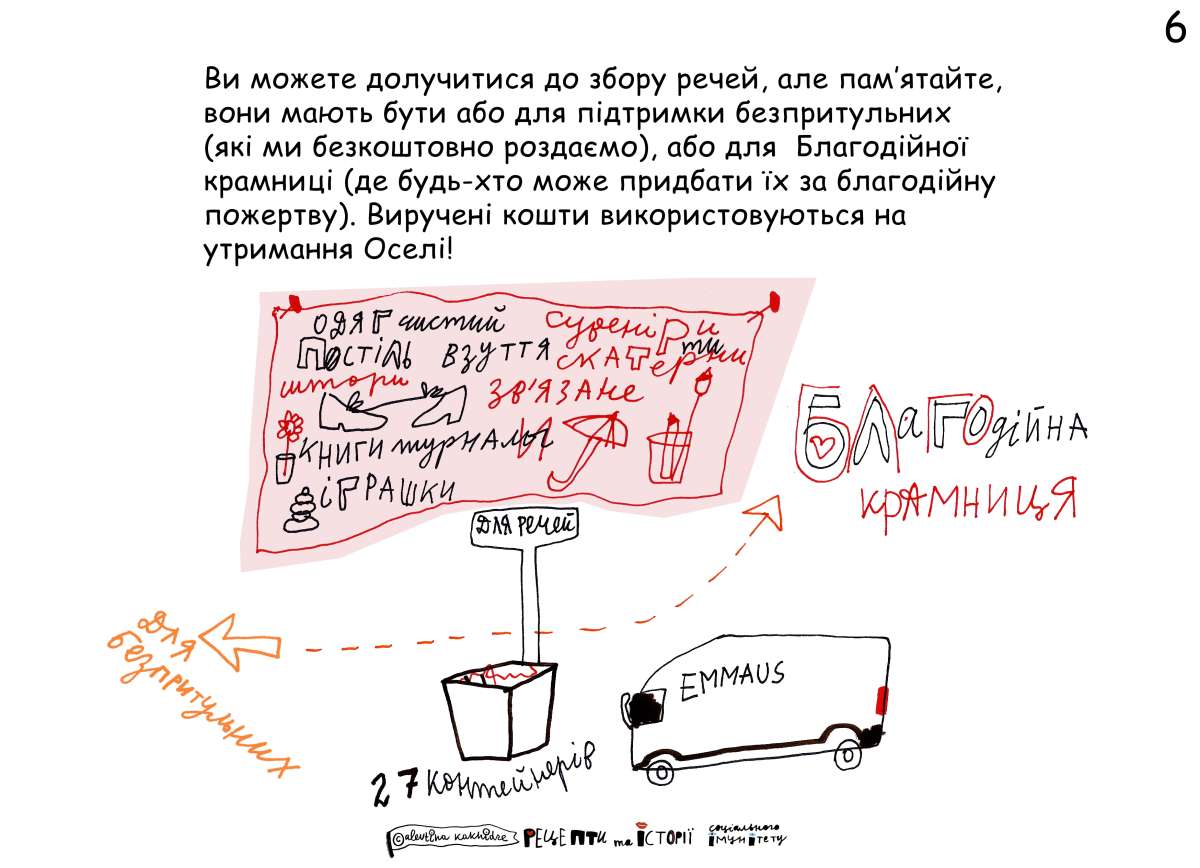 6
Ви можете долучитися до збору речей, але пам’ятайте,
вони мають бути або для підтримки безпритульних
(які ми безкоштовно роздаємо), або для Благодійної
крамниці (де будь-хто може придбати їх за благодійну
пожертву). Виручені кошти використовуються на
утримання Оселі!
ОДЯГ чистий сувеніри
ПОСТІЛЬ ВЗУТТЯ СКАТЕРТИНИ
штори
ЗВ'ЯЗАНЕ
КНИГИ журнали
ІГРАШКИ
БЛАГОдійна
КРАМНИЦЯ
ДЛЯ РЕЧЕЙ
Для
безпритульних
EMMAUS
27 контейнерів
©alevtina kakhidze РЕЦЕПТИ та ІСТОРІЇ соціального
імунітету